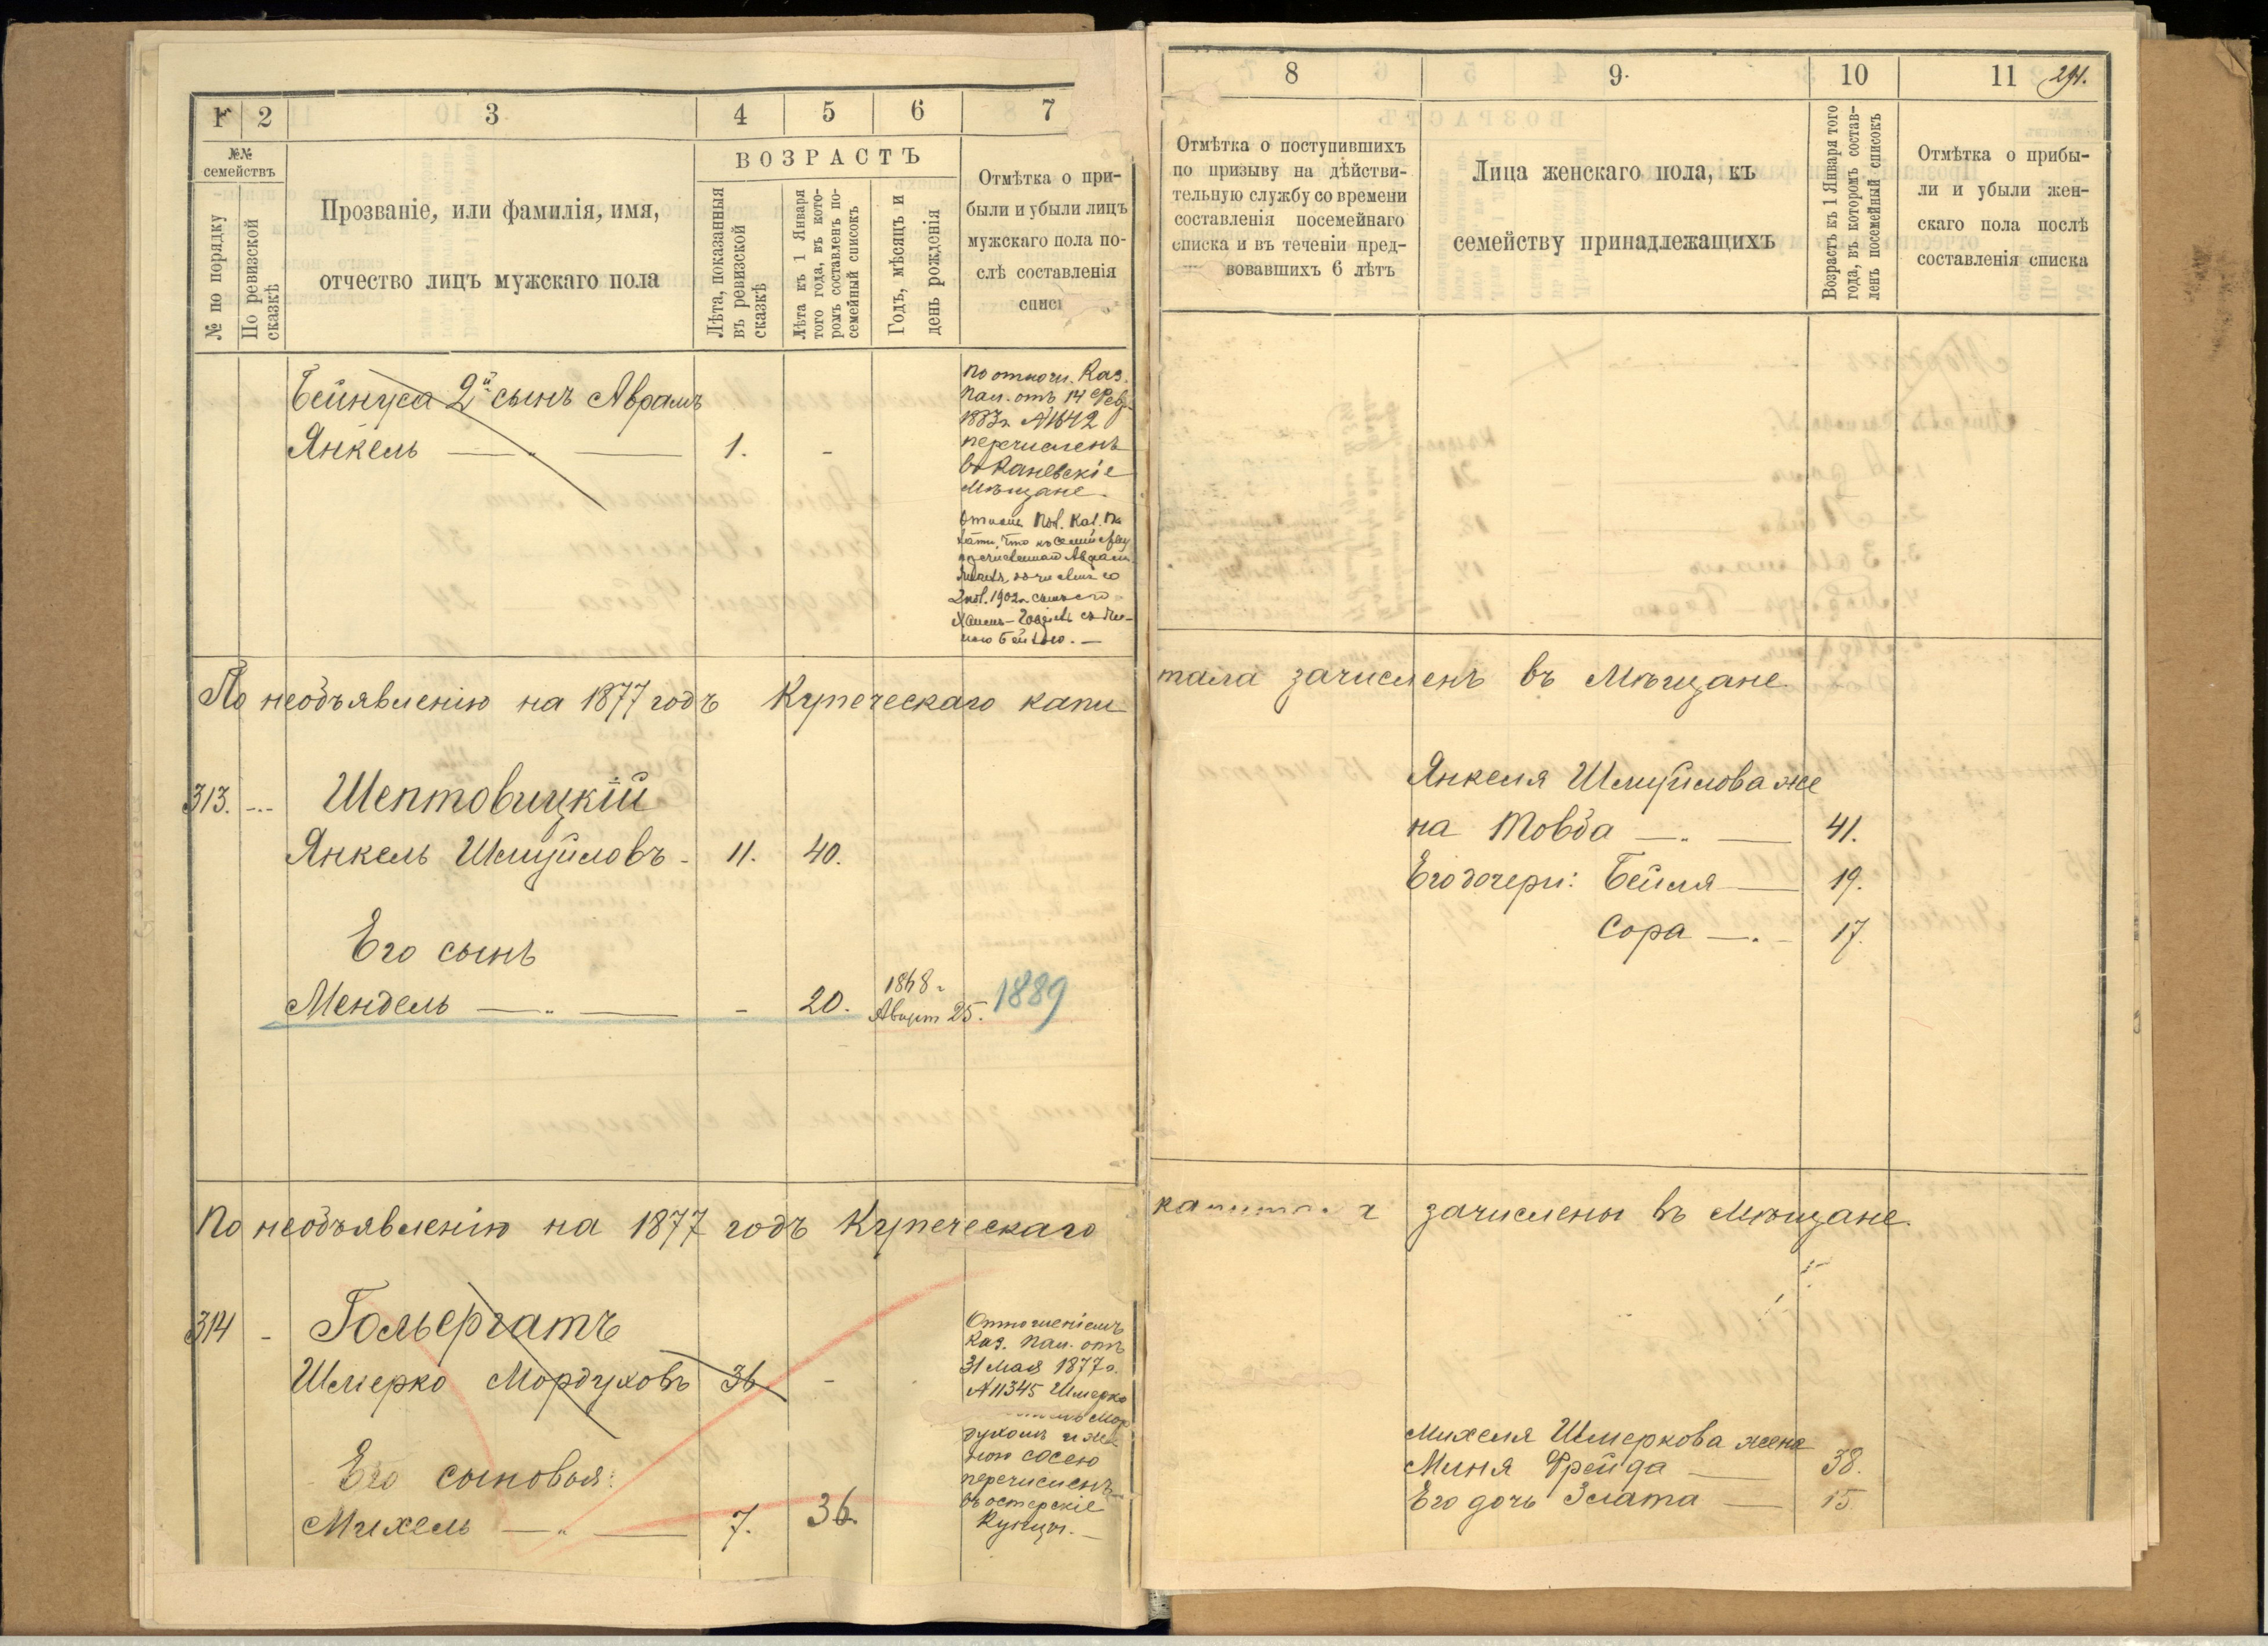 1 2 3 4 5 6 7
№№ семействъ
№ по порядку
По ревизской сказкѣ
Прозваніе, или фамилія, имя,
отчество лицъ мужскаго пола
ВОЗРАСТЪ
Лѣта, показанныя
въ ревизской
сказкѣ
Лѣта къ 1 Января
того года, въ кото-
ромъ составленъ по-
семейный списокъ
Годъ, мѣсяцъ и
день рожденія
Отмѣтка о при-
были и убыли лицъ
мужскаго пола по-
слѣ составленія
Бейнуса 2й сынъ Аврамъ
Янкель — „ — 1. -
По отнош. Каз.
Пал. отъ 14 Фев.
1883г. №1642
перечисленъ
въ Каневскіе
Мѣщане.
По необъявленію на 1877 годъ Купеческаго капи
313. -- Шептовицкій
Янкель Шмуйловъ - 11. 40.
Его сынъ
Мендель — „ — - 20. 1868г. Август 25. 1889
По необъявленію на 1877 годъ Купеческаго
314 - Гольергатъ
Шмерко Мордуховъ 36 -
Его сыновья:
Михель — „ — 7. 36.
Отношеніемъ
Каз. Пал. отъ
31 Мая 1877г.
№11345 Шмерко
Мор
духомъ и же
ною Сосею
перечисленъ
въ остерскіе
Купцы.—
8 9. 10 11 291.
Отмѣтка о поступившихъ
по призыву на дѣйстви-
тельную службу со времени
составленія посемейнаго
списка и въ теченіи пред-
вовавшихъ 6 лѣтъ
Лица женскаго пола, къ
семейству принадлежащихъ
Возрастъ къ 1 Января того
года, въ которомъ состав-
ленъ посемейный списокъ
Отмѣтка о прибы-
ли и убыли жен-
скаго пола послѣ
составленія списка
тала зачисленъ въ Мѣщане.
Янкеля Шмуйлова же
на Товба — . — 41.
Его дочери: Бейля — 19.
Сора — . - 17.
зачислены въ Мѣщане.
Михеля Шмеркова жена
Миня Фрейда — 38.
Его дочь Злата — 15